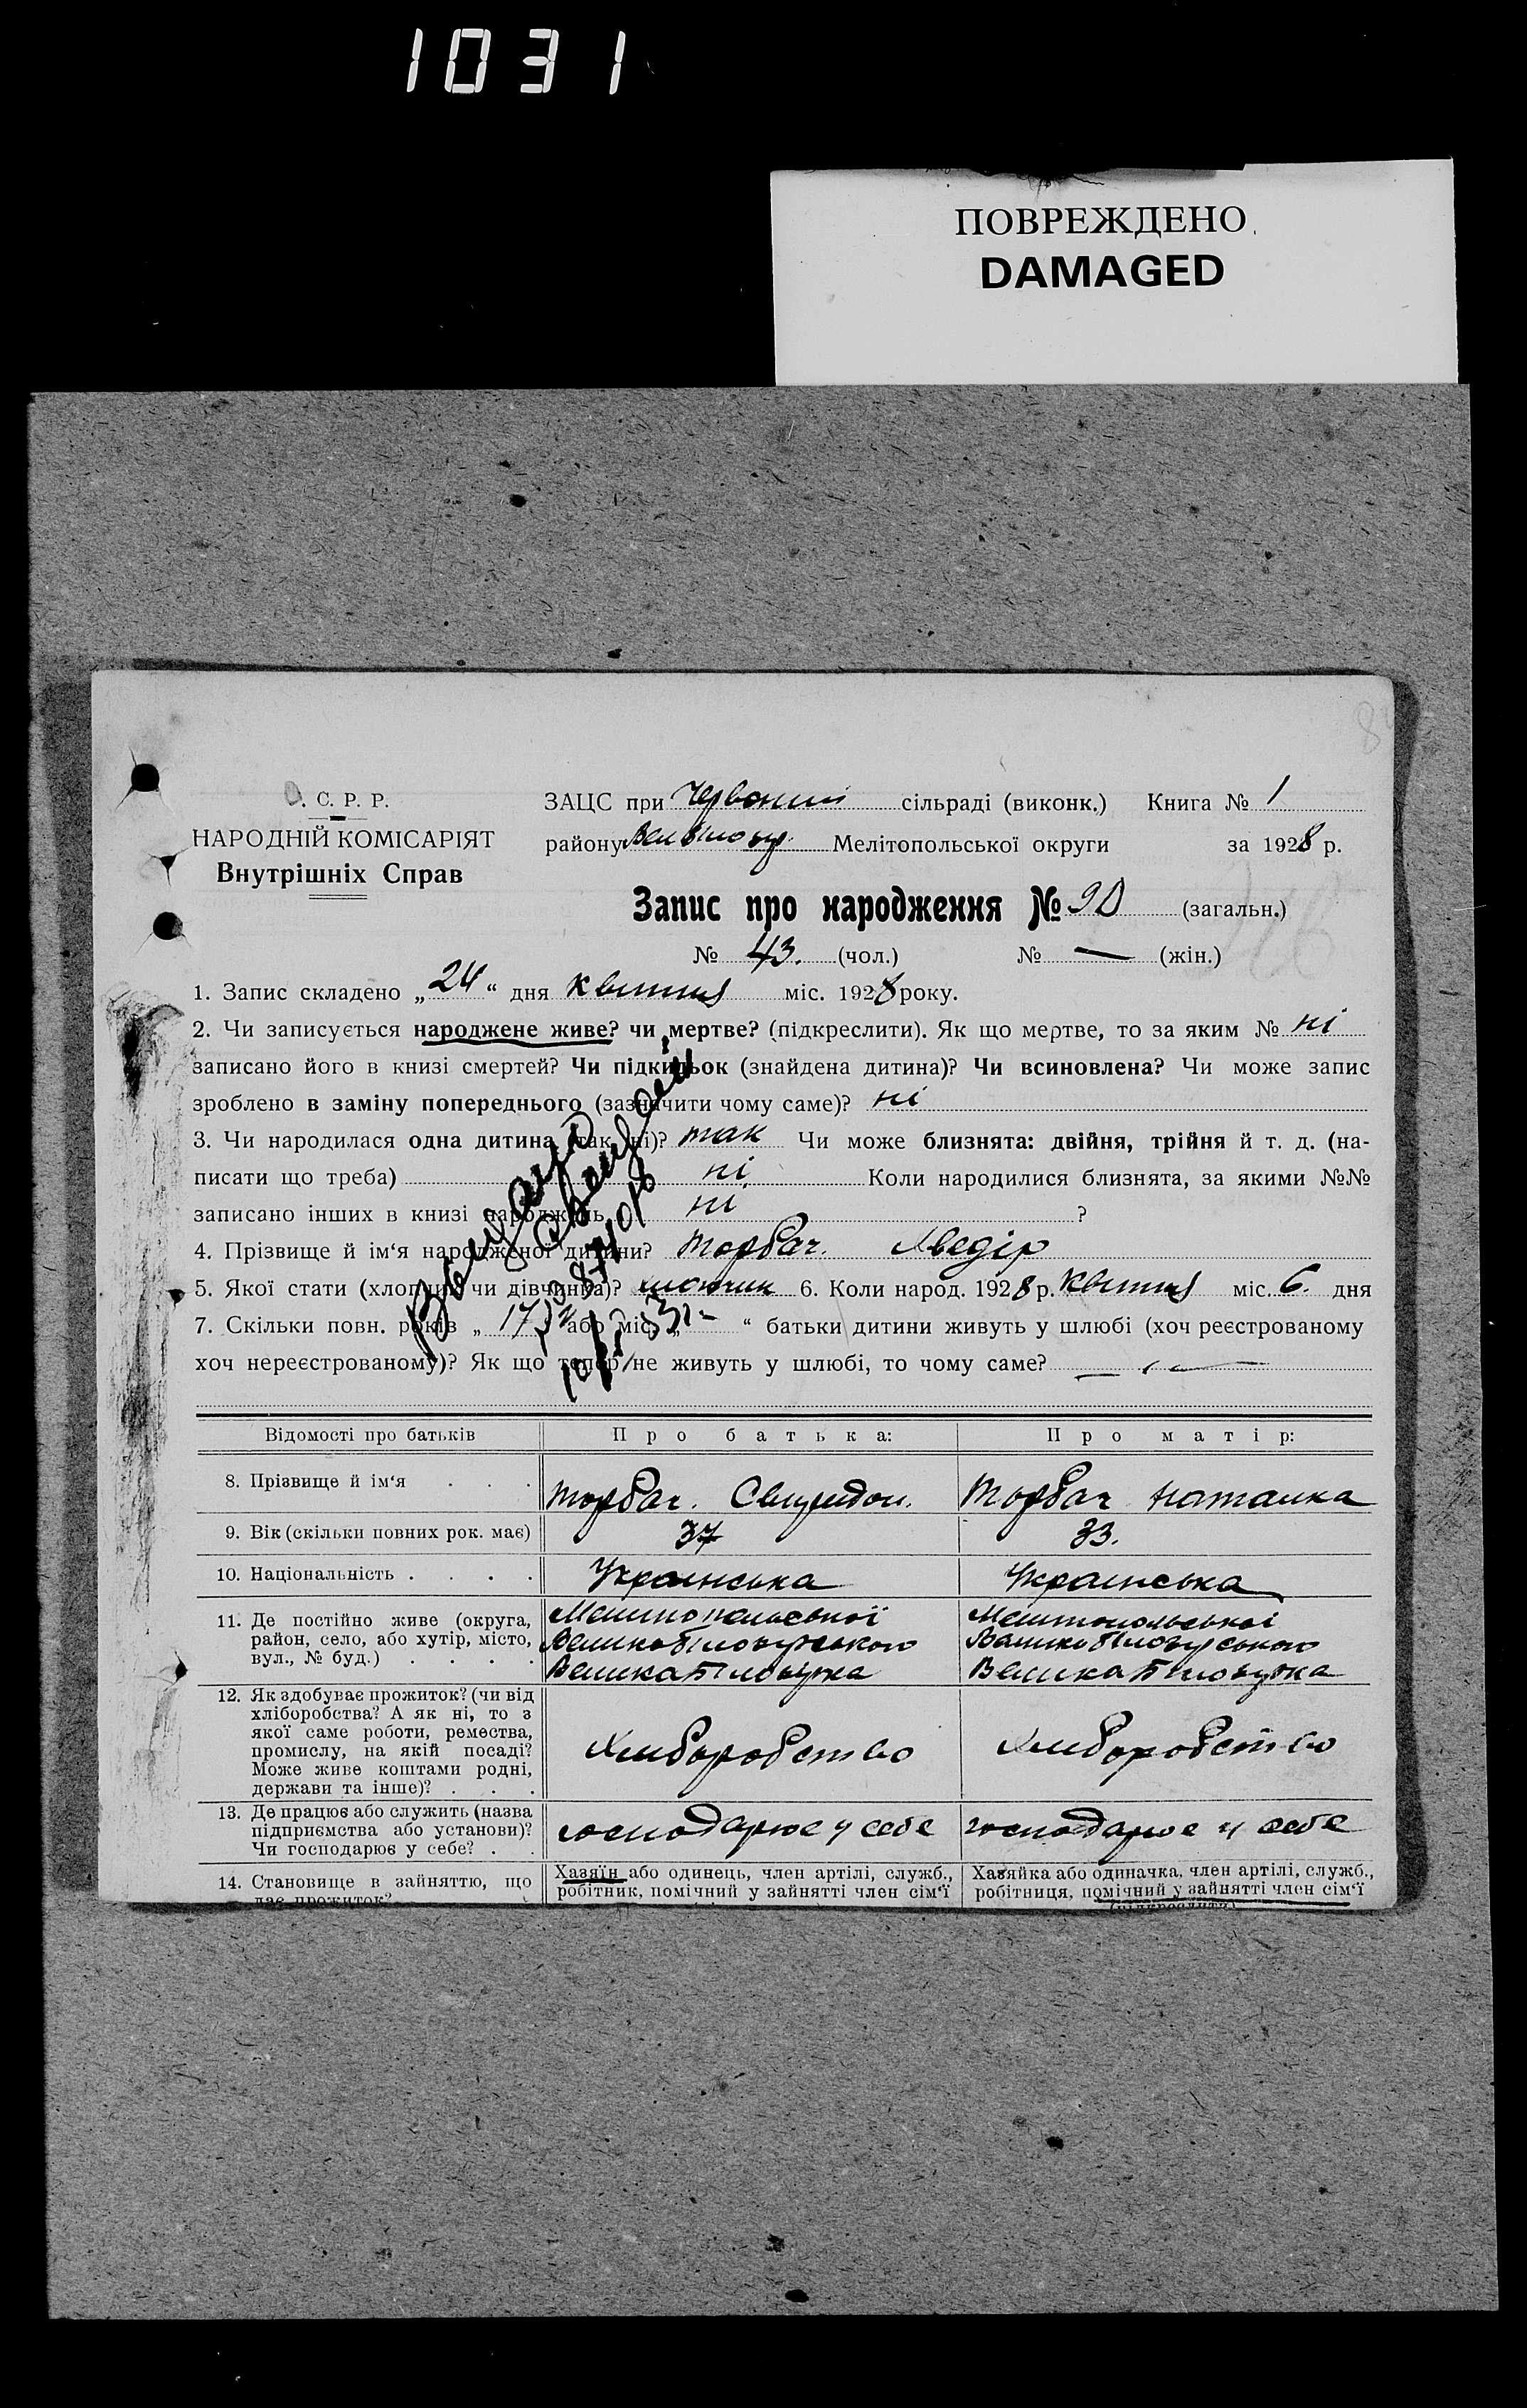 1031
ПОВРЕЖДЕНО
DAMAGED
С. Р. Р.
НАРОДНІЙ КОМІСАРІЯТ
Внутрішніх Справ
ЗАЦС при Червоний сільраді (виконк.) Книга № 1
району Мелітопольської округи за 1928 р.
Запис про народження № 90 (загальн.)
№ 43. (чол.) № — (жін.)
1. Запис складено „24“ дня квітня міс. 1928 року.
2. Чи записується народжене живе? чи мертве? (підкреслити). Як що мертве, то за яким № ні
записано його в книзі смертей? Чи підкидьок (знайдена дитина)? Чи всиновлена? Чи може запис
зроблено в заміну попереднього (зазначити чому саме)? ні
3. Чи народилася одна дитина (так, ні)? так Чи може близнята: двійня, трійня й т. д. (на-
писати що треба) ні Коли народилися близнята, за якими №№
записано інших в книзі народжень ні ?
4. Прізвище й ім‘я народженої дитини? Торбач. Хведір
5. Якої стати (хлопчик чи дівчинка)? хлопчик 6. Коли народ. 1928 р. квітня міс. 6. дня
7. Скільки повн. років „17“ або міс. „ “ батьки дитини живуть у шлюбі (хоч реєстрованому
хоч нереєстрованому)? Як що тепер не живуть у шлюбі, то чому саме? —
Відомості про батьків Про батька: Про матір:
8. Прізвище й ім‘я . . . Торбач. Свиридон. Торбач Наталка
9. Вік (скільки повних рок. має) 37 33.
10. Національність . . . . Українська Українська
11. Де постійно живе (округа, Мелітопольської Мелітопольської
район, село, або хутір, місто, Великобілозірського Великобілозірського
вул., № буд.) . . . . Велика Білозірка Велика Білозірка
12. Як здобуває прожиток? (чи від
хліборобства? А як ні, то з
якої саме роботи, ремества,
промислу, на якій посаді? Хліборобство Хліборобство
Може живе коштами родні,
держави та інше)? . . .
13. Де працює або служить (назва
підприємства або установи)? господарює у себе господарює у себе
Чи господарює у себе? . .
14. Становище в зайняттю, що Хазяїн або одинець, член артілі, служб., Хазяйка або одиначка, член артілі, служб.,
дає прожиток? робітник, помічний у зайнятті член сім‘ї робітниця, помічний у зайнятті член сім‘ї
(підкреслити)